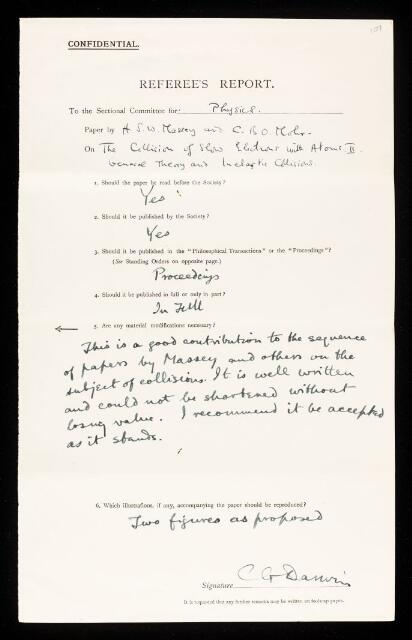 CONFIDENTIAL.
REFEREE'S REPORT.
To the Sectional Committee for: Physics.
Paper by H S. W. Massey and C. B. O. Mohr.
On The Collision of Slow Electrons with Atoms II.
General Theory and Inelastic Collisions.
1. Should the paper be read before the Society?
Yes
2. Should it be published by the Society?
Yes
3. Should it be published in the "Philosophical Transactions" or the "Proceedings"?
(See Standing Orders on opposite page.)
Proceedings
4. Should it be published in full or only in part?
In full
5. Are any material modifications necessary?
This is a good contribution to the sequence
of papers by Massey and others on the
subject of collisions. It is well written
and could not be shortened without
losing value. I recommend it be accepted
as it stands.
6. Which illustrations, if any, accompanying the paper should be reproduced?
Two figures as proposed
Signature C G Darwin
It is requested that any further remarks may be written on foolscap paper.